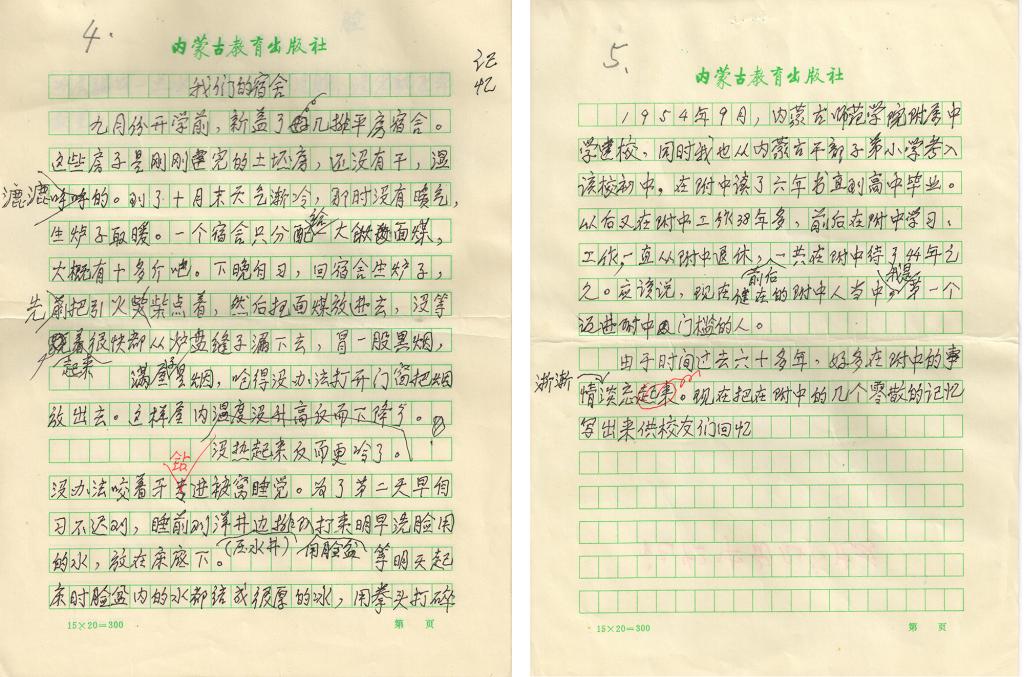 4.
内蒙古教育出版社
记忆
我们的宿舍
九月份开学前，新盖了几排平房宿舍。
这些房子是刚刚建完的土坯房，还没有干，湿
漉漉的。到了十月末天气渐冷，那时没有暖气，
生炉子取暖。一个宿舍只分配给一大面煤，
大概有十多斤吧。下晚自习，回宿舍生炉子，
先把引火柴点着，然后把面煤放进去，没等
着起来很快都从炉盘缝子漏下去，冒一股黑烟，
满屋是烟，呛得没办法打开门窗把烟
放出去。这样屋内温度没升高反而下降了。
没热起来反而更冷了。
没办法咬着牙钻进被窝睡觉。为了第二天早自
习不迟到，睡前到洋井边排队打来明早洗脸用
的水，放在床底下。（压水井）用脸盆 等明天起
床时脸盆内的水都结成很厚的冰，用拳头打碎
15×20=300 第 页
5.
内蒙古教育出版社
1954年9月，内蒙古师范学院附属中
学建校，同时我也从内蒙古干部子弟小学考入
该校初中。在附中读了六年书直到高中毕业。
以后又在附中工作38年多，前后在附中学习、
工作，一直从附中退休，一共在附中待了44年之
久。应该说，现在前后健在的附中人当中，我是第一个
迈进附中门槛的人。
由于时间过去六十多年，好多在附中的事
情渐渐淡忘起来。现在把在附中的几个零散的记忆
写出来供校友们回忆
15×20=300 第 页